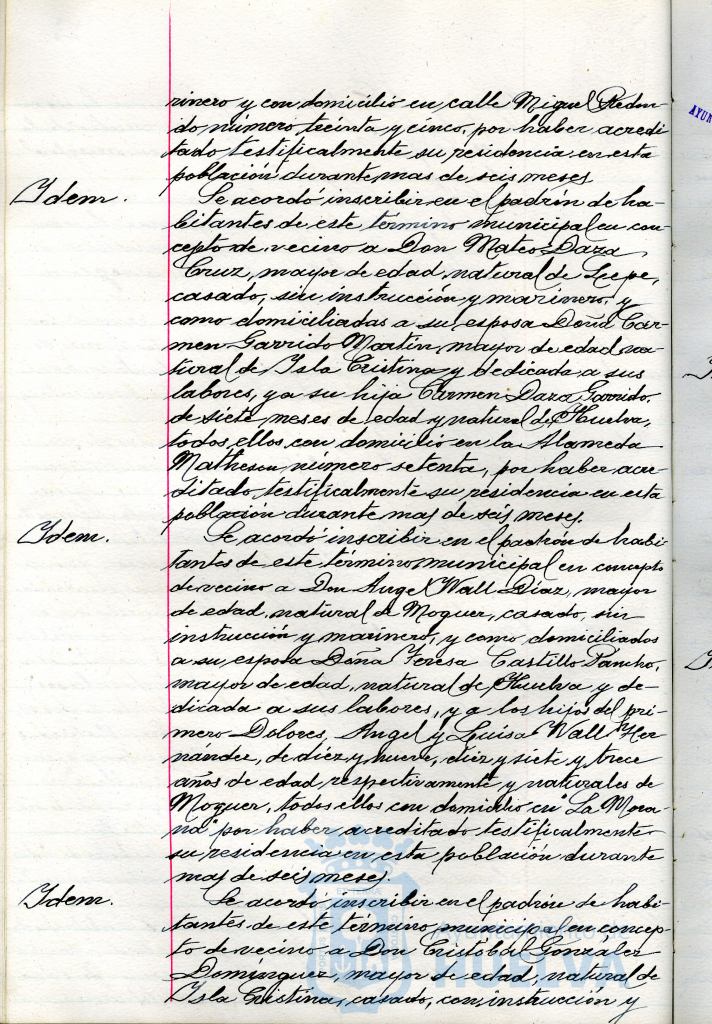 rinero y con domicilio en calle Miguel Redon-
do número treinta y cinco, por haber acredi
tado testificalmente su residencia en esta
población durante mas de seis meses
Idem.
Se acordó inscribir en el padrón de ha-
bitantes de este término municipal en con-
cepto de vecino a Don Mateo Daza
Cruz, mayor de edad, natural de Lepe,
casado, sin instrucción y marinero, y
como domiciliadas a su esposa Doña Car-
men Garrido Martín, mayor de edad, na-
tural de Isla Cristina y dedicada a sus
labores, y a su hija Carmen Daza Garrido,
de siete meses de edad y natural de Huelva,
todos ellos con domicilio en la Alameda
Matheson número setenta, por haber acre-
ditado testificalmente su residencia en esta
población durante mas de seis meses.
Idem.
Se acordó inscribir en el padrón de habi-
tantes de este término municipal en concepto
de vecino a Don Angel Wall Díaz, mayor
de edad, natural de Moguer, casado, sin
instrucción y marinero, y como domiciliados
a su esposa Doña Teresa Castillo Pancho,
mayor de edad, natural de Huelva y de-
dicada a sus labores, y a los hijos del pri-
mero Dolores, Angel y Luisa Wall Her-
nández, de diez y nueve, diez y siete y trece
años de edad, respectivamente y naturales de
Moguer, todos ellos con domicilio en "La Mora-
na" por haber acreditado testificalmente
su residencia en esta población durante
mas de seis meses.
Idem.
Se acordó inscribir en el padrón de habi-
tantes de este término municipal en concep-
to de vecino a Don Cristobal González
Domínguez, mayor de edad, natural de
Isla Cristina, casado, con instrucción y
AYUN
HUELVA